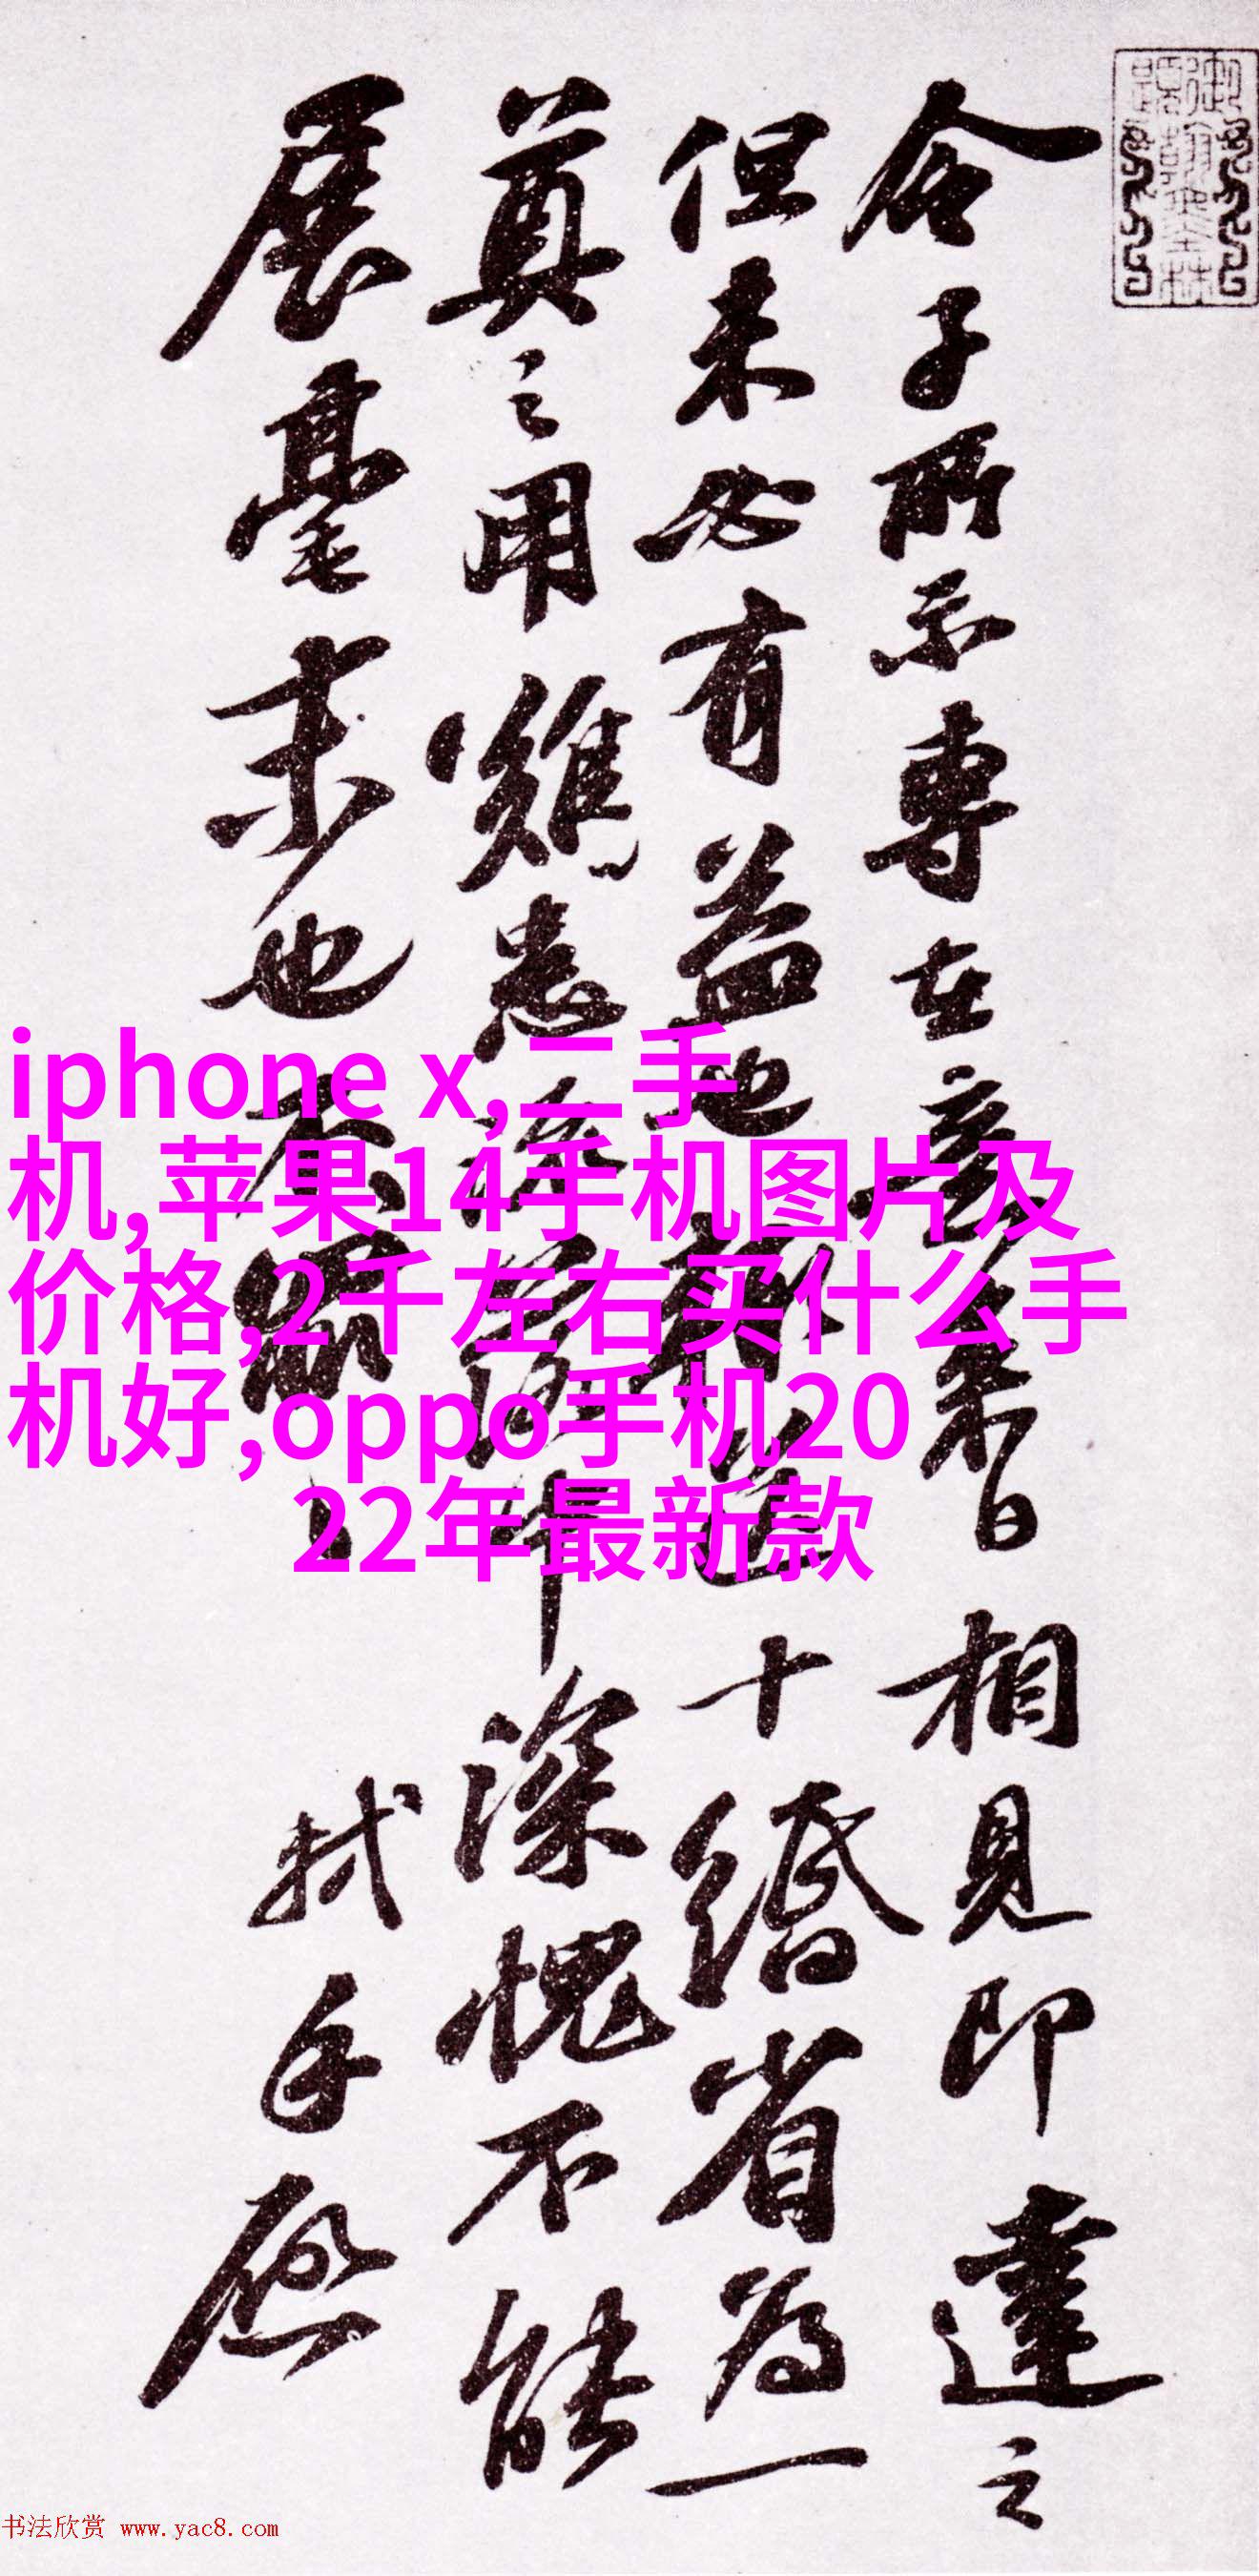 令子所示專在意來日相見即達之
但未必有益也輒送十緡省為一
奠之用雖悉深愧不能
展毫末也
軾手啟
iphone x,二手
机,苹果14手机图片及
价格,2千左右买什么手
机好,oppo手机20
22年最新款
书法欣赏 www.yac8.com